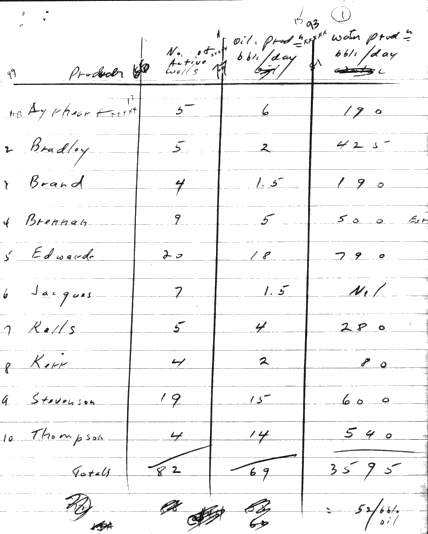 93 1
No. of oil prod = water prod =
Active bbls/day bbls/day
Producer wells
Ayrheart 5 6 190
2 Bradley 5 2 425
3 Brand 4 1.5 190
4 Brennan 9 5 500 Est
5 Edwards 20 18 790
6 Jacques 7 1.5 Nil
7 Kells 5 4 280
8 Kerr 4 2 80
9 Stevenson 19 15 600
10 Thompson 4 14 540
Totals 82 69 3595
= 52/bbl.
oil